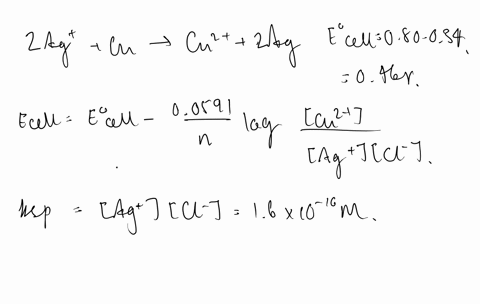 2Ag⁺ + Cu → Cu²⁺ + 2Ag E°cell = 0.80 - 0.34
= 0.46v.
Ecell = E°cell - 0.0591/n log [Cu²⁺]/[Ag⁺][Cl⁻].
ksp = [Ag⁺][Cl⁻] = 1.6 × 10⁻¹⁶ M.